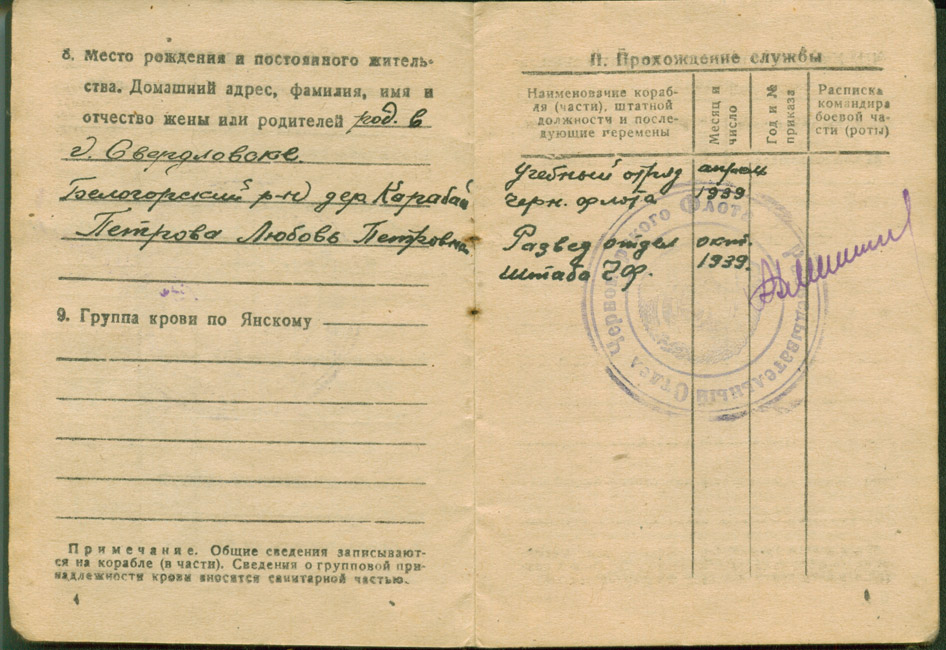 8. Место рождения и постоянного житель-
ства. Домашний адрес, фамилия, имя и
отчество жены или родителей род. в
г. Свердловске.
Белогорский р-н дер. Карабай
Петрова Любовь Петровна
9. Группа крови по Янскому
Примечание. Общие сведения записывают-
ся на корабле (в части). Сведения о групповой при-
надлежности крови вносятся санитарной частью.
4
II. Прохождение службы
Наименование кораб-
ля (части), штатной
должности и после-
дующие перемены
Месяц и
число
Год и №
приказа
Расписка
командира
боевой ча-
сти (роты)
Учебный отряд апрель
Черн. флота 1939
Развед отдел окт.
Штаба ЧФ. 1939.
Разведывательный Отдел Черноморского Флота